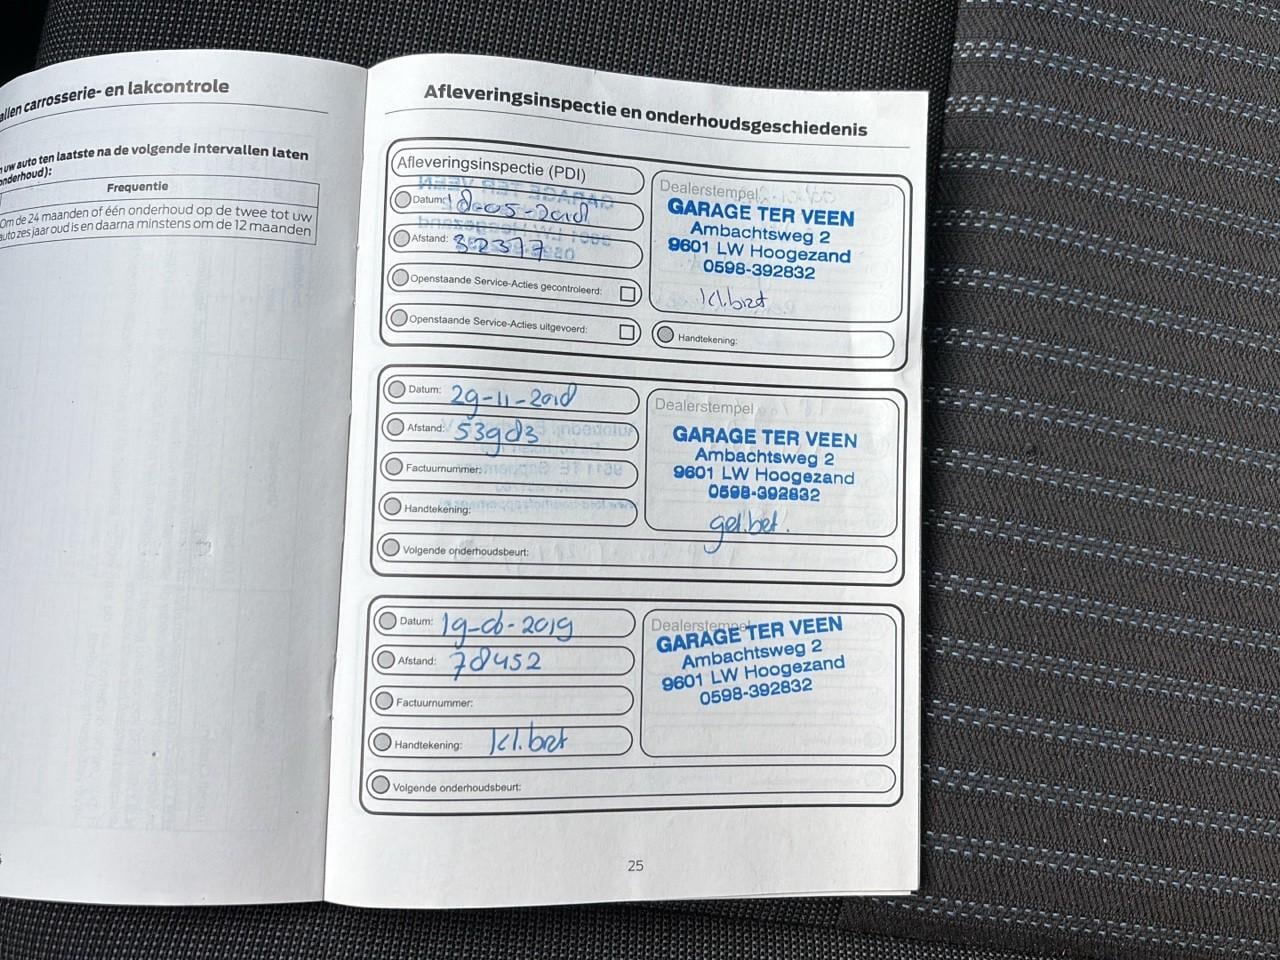 allen carrosserie- en lakcontrole
uw auto ten laatste na de volgende intervallen laten
onderhoud):
Frequentie
Om de 24 maanden of één onderhoud op de twee tot uw
auto zes jaar oud is en daarna minstens om de 12 maanden
Afleveringsinspectie en onderhoudsgeschiedenis
Afleveringsinspectie (PDI)
Datum: 18-05-2018
Afstand: 32377
Openstaande Service-Acties gecontroleerd:
Openstaande Service-Acties uitgevoerd:
Dealerstempel
GARAGE TER VEEN
Ambachtsweg 2
9601 LW Hoogezand
0598-392832
kl.brt
Handtekening:
Datum: 29-11-2018
Afstand: 53983
Factuurnummer:
Handtekening:
Volgende onderhoudsbeurt:
Dealerstempel
GARAGE TER VEEN
Ambachtsweg 2
9601 LW Hoogezand
0598-392832
Datum: 19-06-2019
Afstand: 78452
Factuurnummer:
Handtekening: kl.brt
Volgende onderhoudsbeurt:
Dealerstempel
GARAGE TER VEEN
Ambachtsweg 2
9601 LW Hoogezand
0598-392832
25